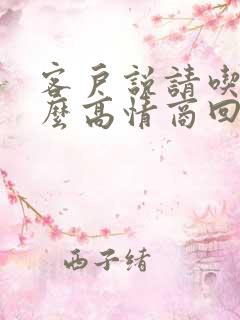 客戶説請喫
麼高情商回
西子緒